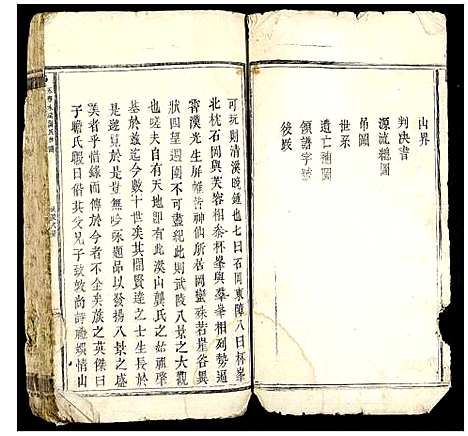 山界
判決書
源流總圖
吊圖
世系
遺亡補圖
領譜字號
後跋
可玩則清溪晚鍾也七曰石岡東障八曰杯峯
北枕石岡與芙蓉相叅杯峯與華蓋相列勢逼
霄漢光生屏帷昔神仙所居岡巒殊若崖谷異
狀四望週圍不可盡覩此則武陵八景之大觀
也嗟夫自有天地即有此溪山龔氏之始祖肇
基於茲迄今數十世矣其間賢達之士生長於
是遊覽於是豈無吟咏題品以發揚八景之盛
美者乎惜緣而傳於今者不全矣族之英傑曰
于瞻氏暇日偕其父兄子致效尚詩禮娛情山